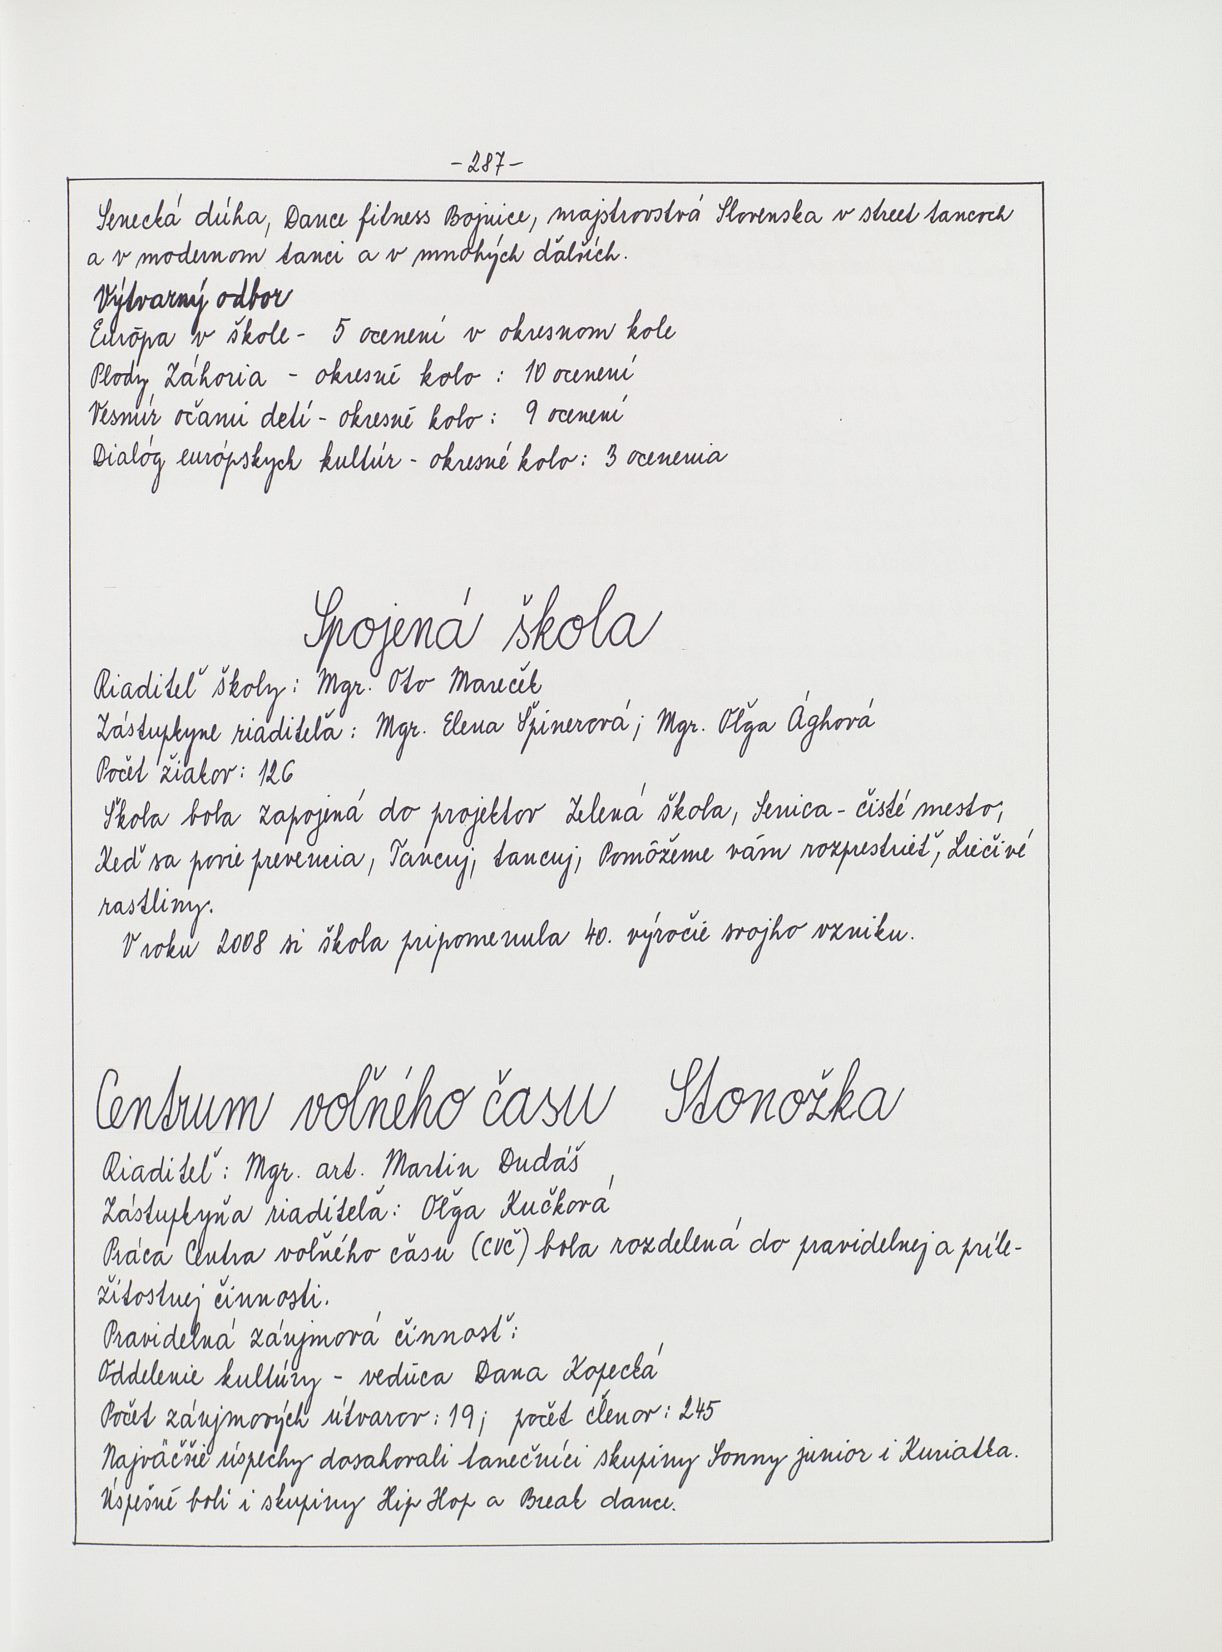 -287-
Senecká dúha, Dance fitness Bojnice, majstrovstvá Slovenska v street tancoch
a v modernom tanci a v mnohých ďalších.
Výtvarný odbor
Európa v škole - 5 ocenení v okresnom kole
Plody Záhoria - okresné kolo : 10 ocenení
Vesmír očami detí - okresné kolo : 9 ocenení
Dialóg európskych kultúr - okresné kolo : 3 ocenenia
Spojená škola
Riaditeľ školy : Mgr. Oto Mareček
Zástupkyne riaditeľa : Mgr. Elena Špinerová ; Mgr. Oľga Ághová
Počet žiakov : 126
Škola bola zapojená do projektov Zelená škola, Senica - čisté mesto,
Keď sa povie prevencia, Tancuj, tancuj, Pomôžeme vám rozprestrieť, Liečivé
rastliny.
V roku 2008 si škola pripomenula 40. výročie svojho vzniku.
Centrum voľného času Stonožka
Riaditeľ : Mgr. art. Martin Dudáš
Zástupkyňa riaditeľa : Oľga Kučková
Práca Centra voľného času (CVČ) bola rozdelená do pravidelnej a príle-
žitostnej činnosti.
Pravidelná záujmová činnosť :
Oddelenie kultúry - vedúca Dana Kopecká
Počet záujmových útvarov : 19 ; počet členov : 245
Najväčšie úspechy dosahovali tanečníci skupiny Sonny junior i Kuriatka.
Úspešné boli i skupiny Hip Hop a Break dance.